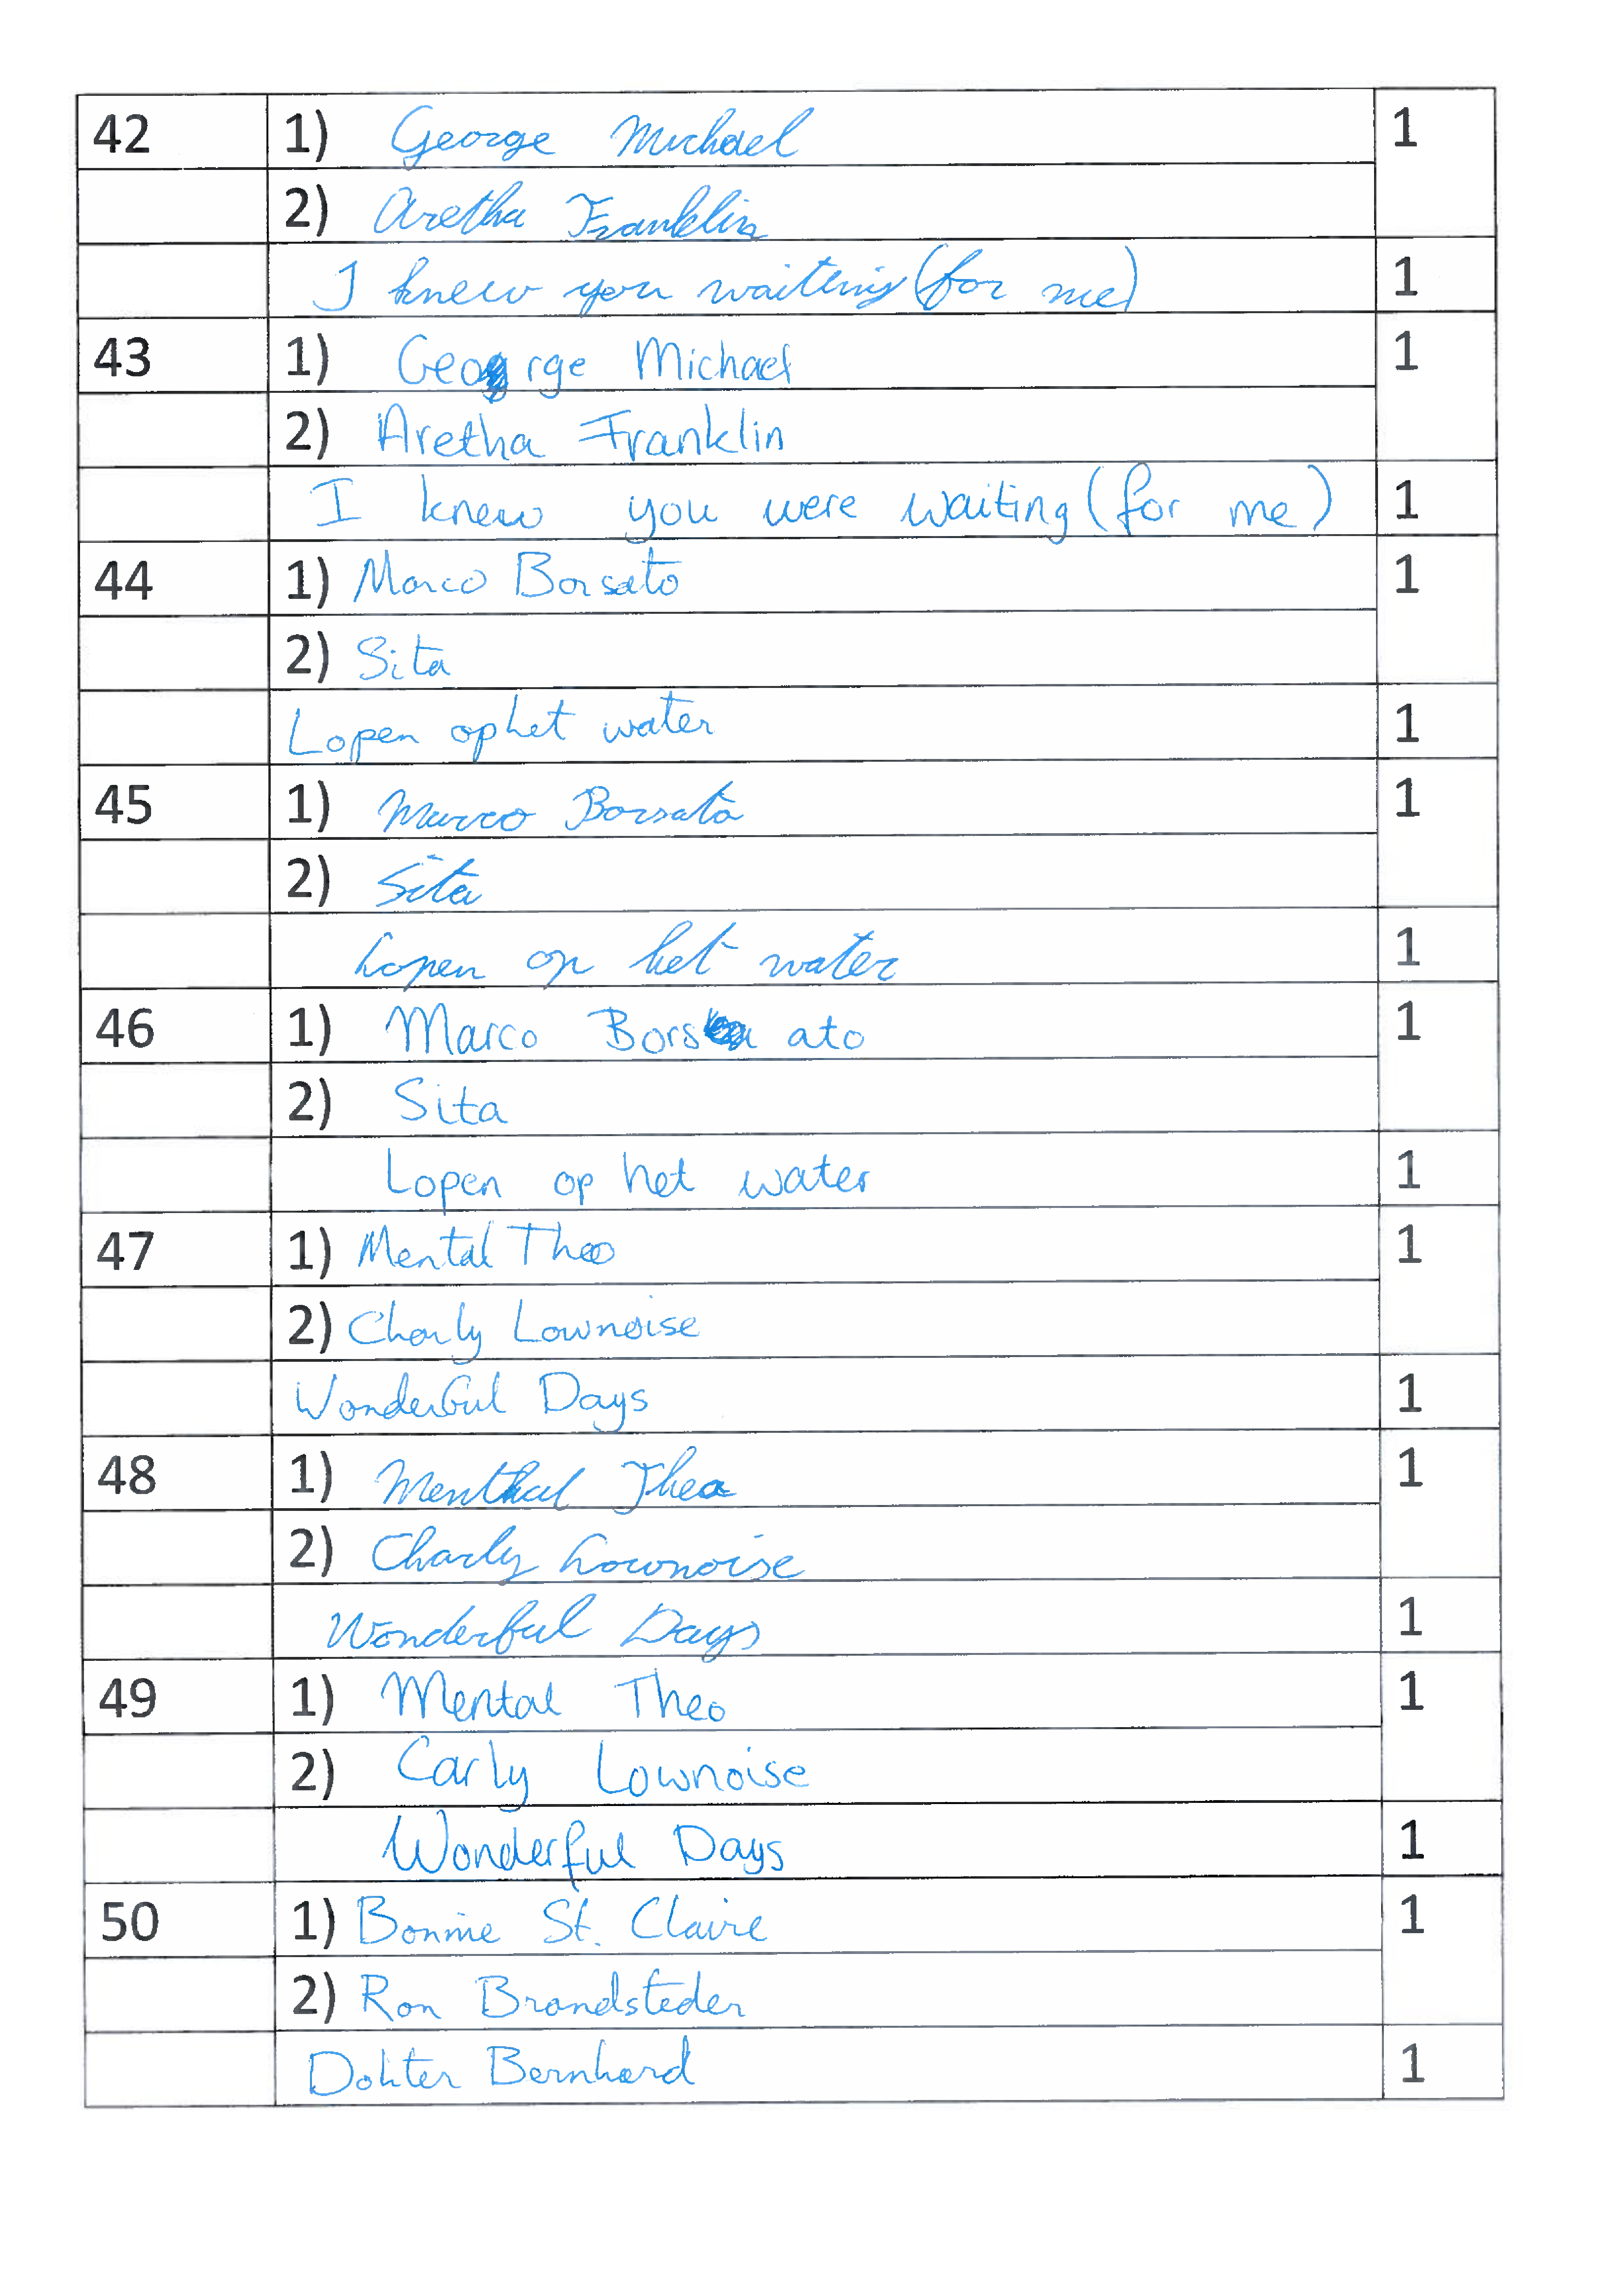 42 1) George Michael 1
2) Aretha Franklin
I knew you waiting (for me) 1
43 1) George Michael 1
2) Aretha Franklin
I knew you were waiting (for me) 1
44 1) Marco Borsato 1
2) Sita
Lopen op het water 1
45 1) Marco Borsato 1
2) Sita
Lopen op het water 1
46 1) Marco Borsato 1
2) Sita
Lopen op het water 1
47 1) Mental Theo 1
2) Charly Lownoise
Wonderful Days 1
48 1) Menthal Theo 1
2) Charly Lownoise
Wonderful Days 1
49 1) Mental Theo 1
2) Carly Lownoise
Wonderful Days 1
50 1) Bonnie St. Claire 1
2) Ron Brandsteder
Dokter Bernhard 1